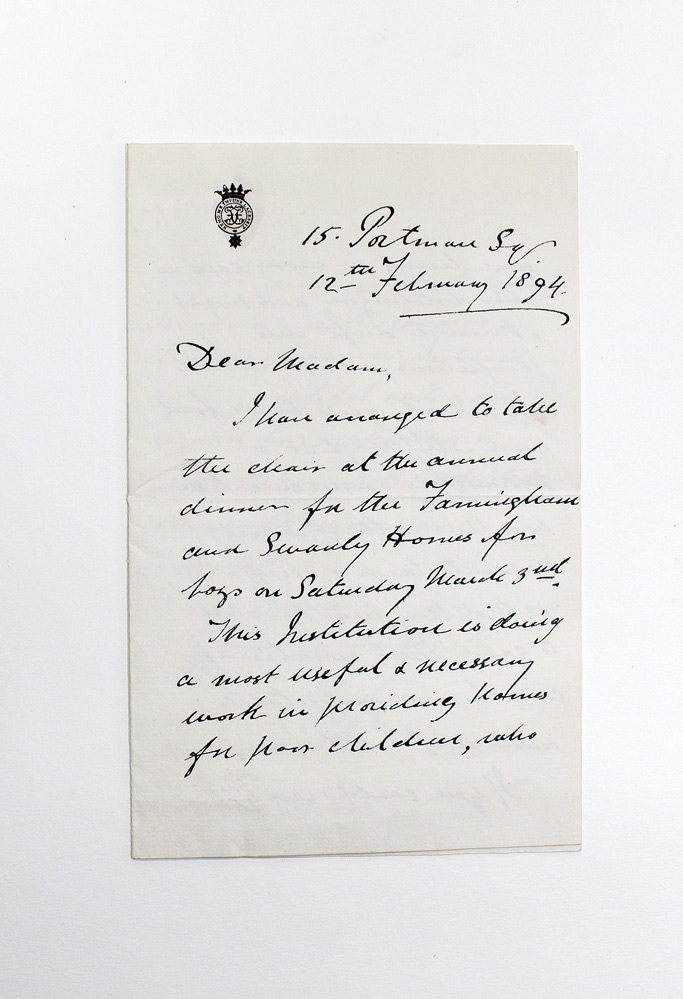 15. Portman Sq.
12th February 1894.
Dear Madam,
I have arranged to take
the chair at the annual
dinner for the Farningham
and Swanly Homes for
boys on Saturday March 3rd.
This Institution is doing
a most useful & necessary
work in providing Homes
for poor children, who